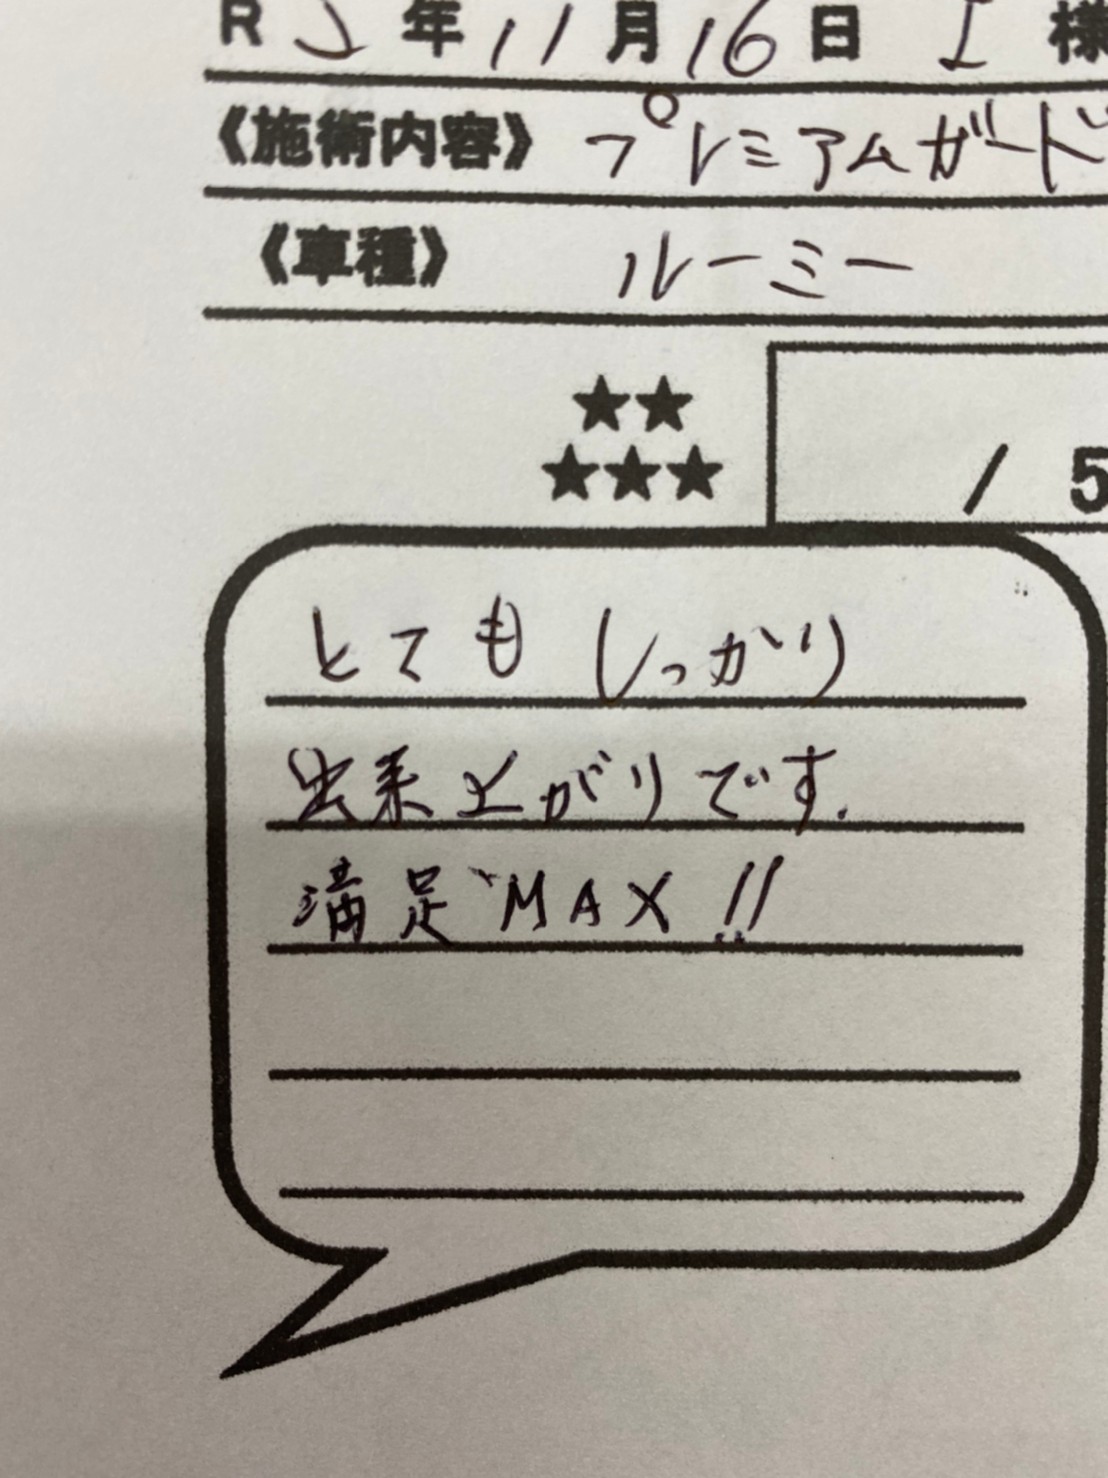 R 年 11 月 16 日 I 様
《施術内容》 プレミアムガード
《車種》 ルーミー
★★
★★★
/ 5
とても しっかり
出来上がりです.
満足 MAX !!